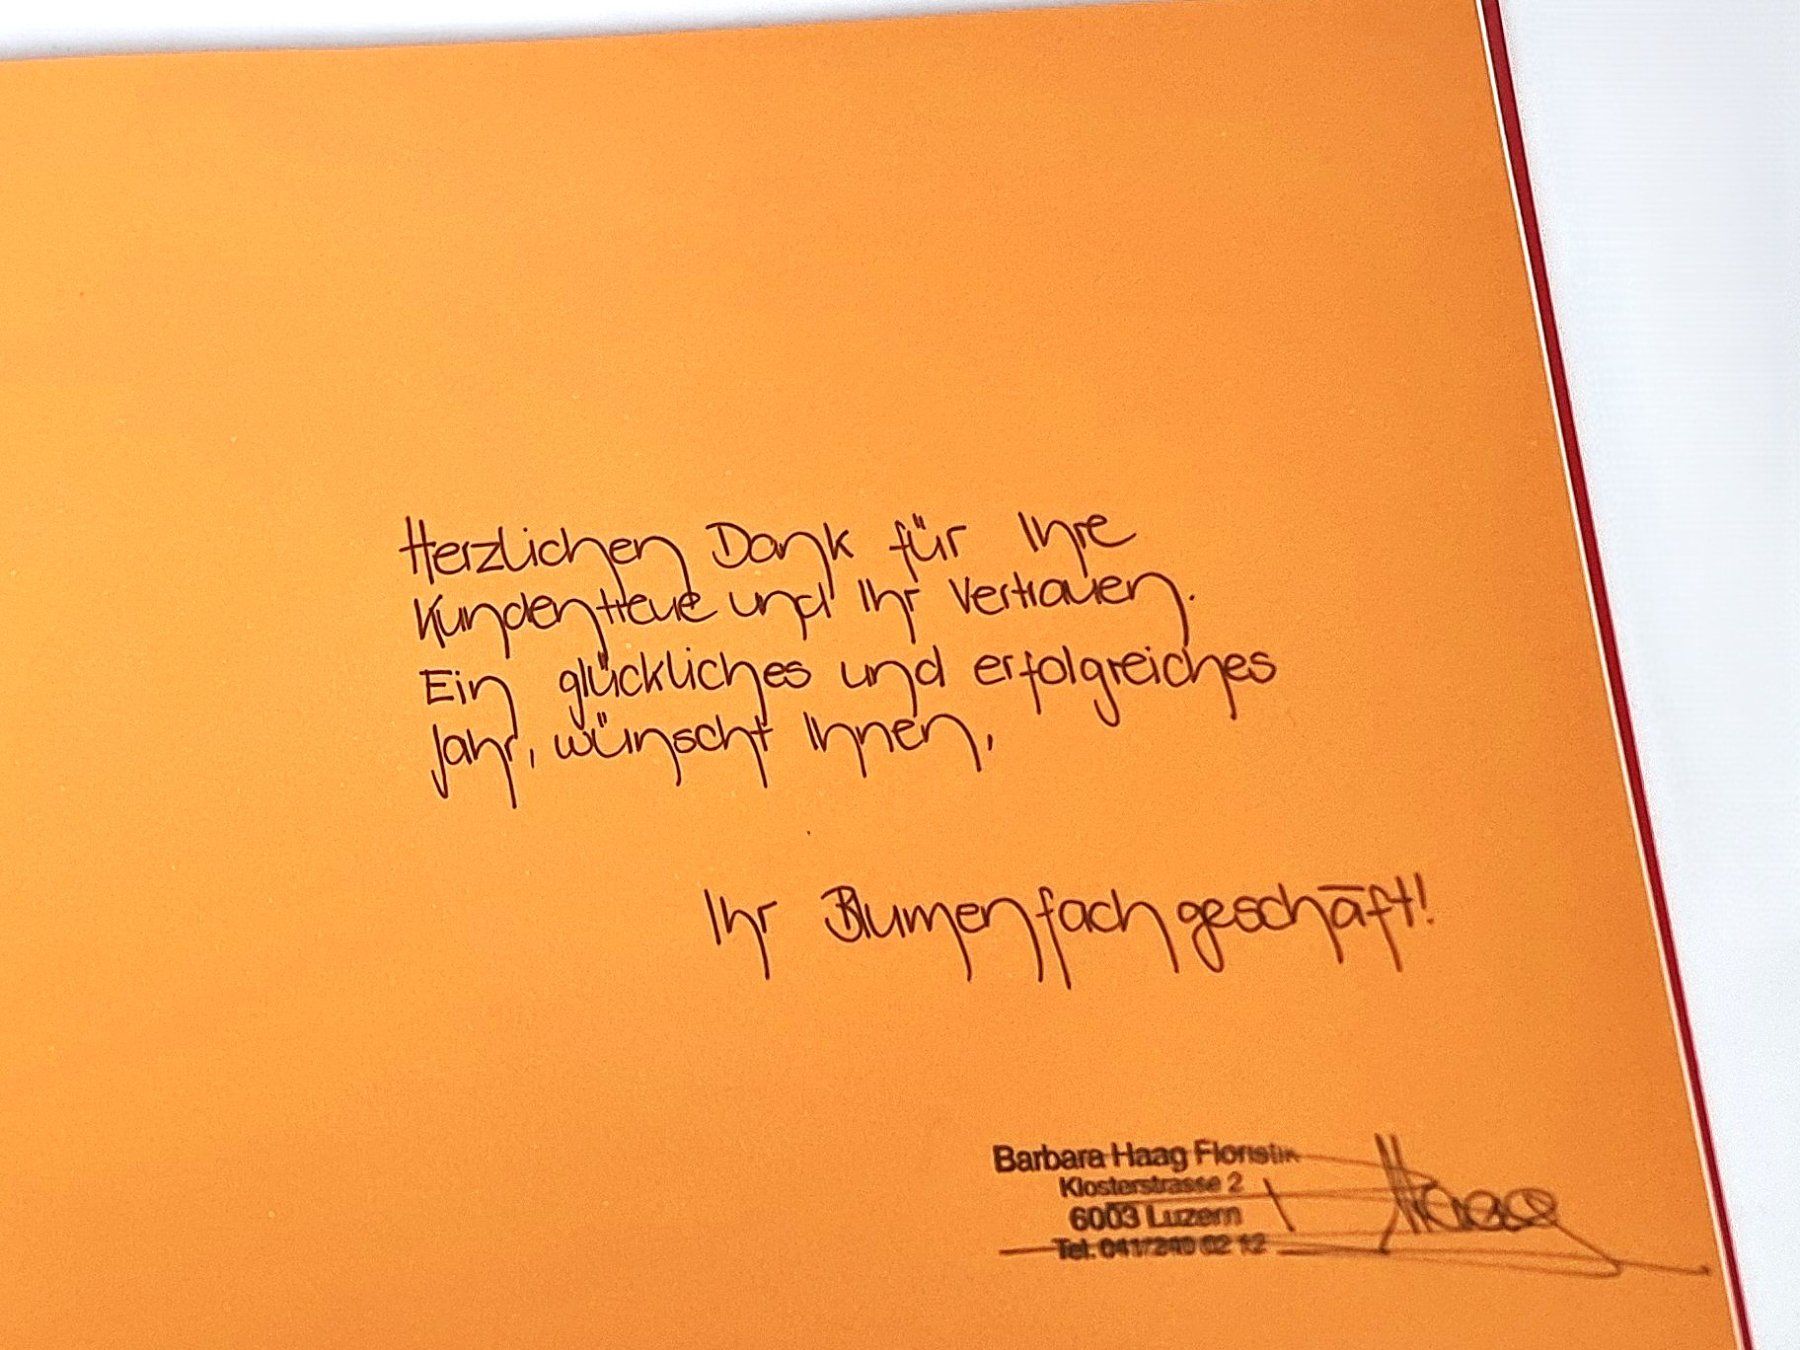 Herzlichen Dank für Ihre
Kundentreue und Ihr Vertrauen.
Ein glückliches und erfolgreiches
Jahr, wünscht Ihnen,
Ihr Blumenfachgeschäft!
Barbara Haag Floristin
Klosterstrasse 2
6003 Luzern
Tel. 041/240 02 12